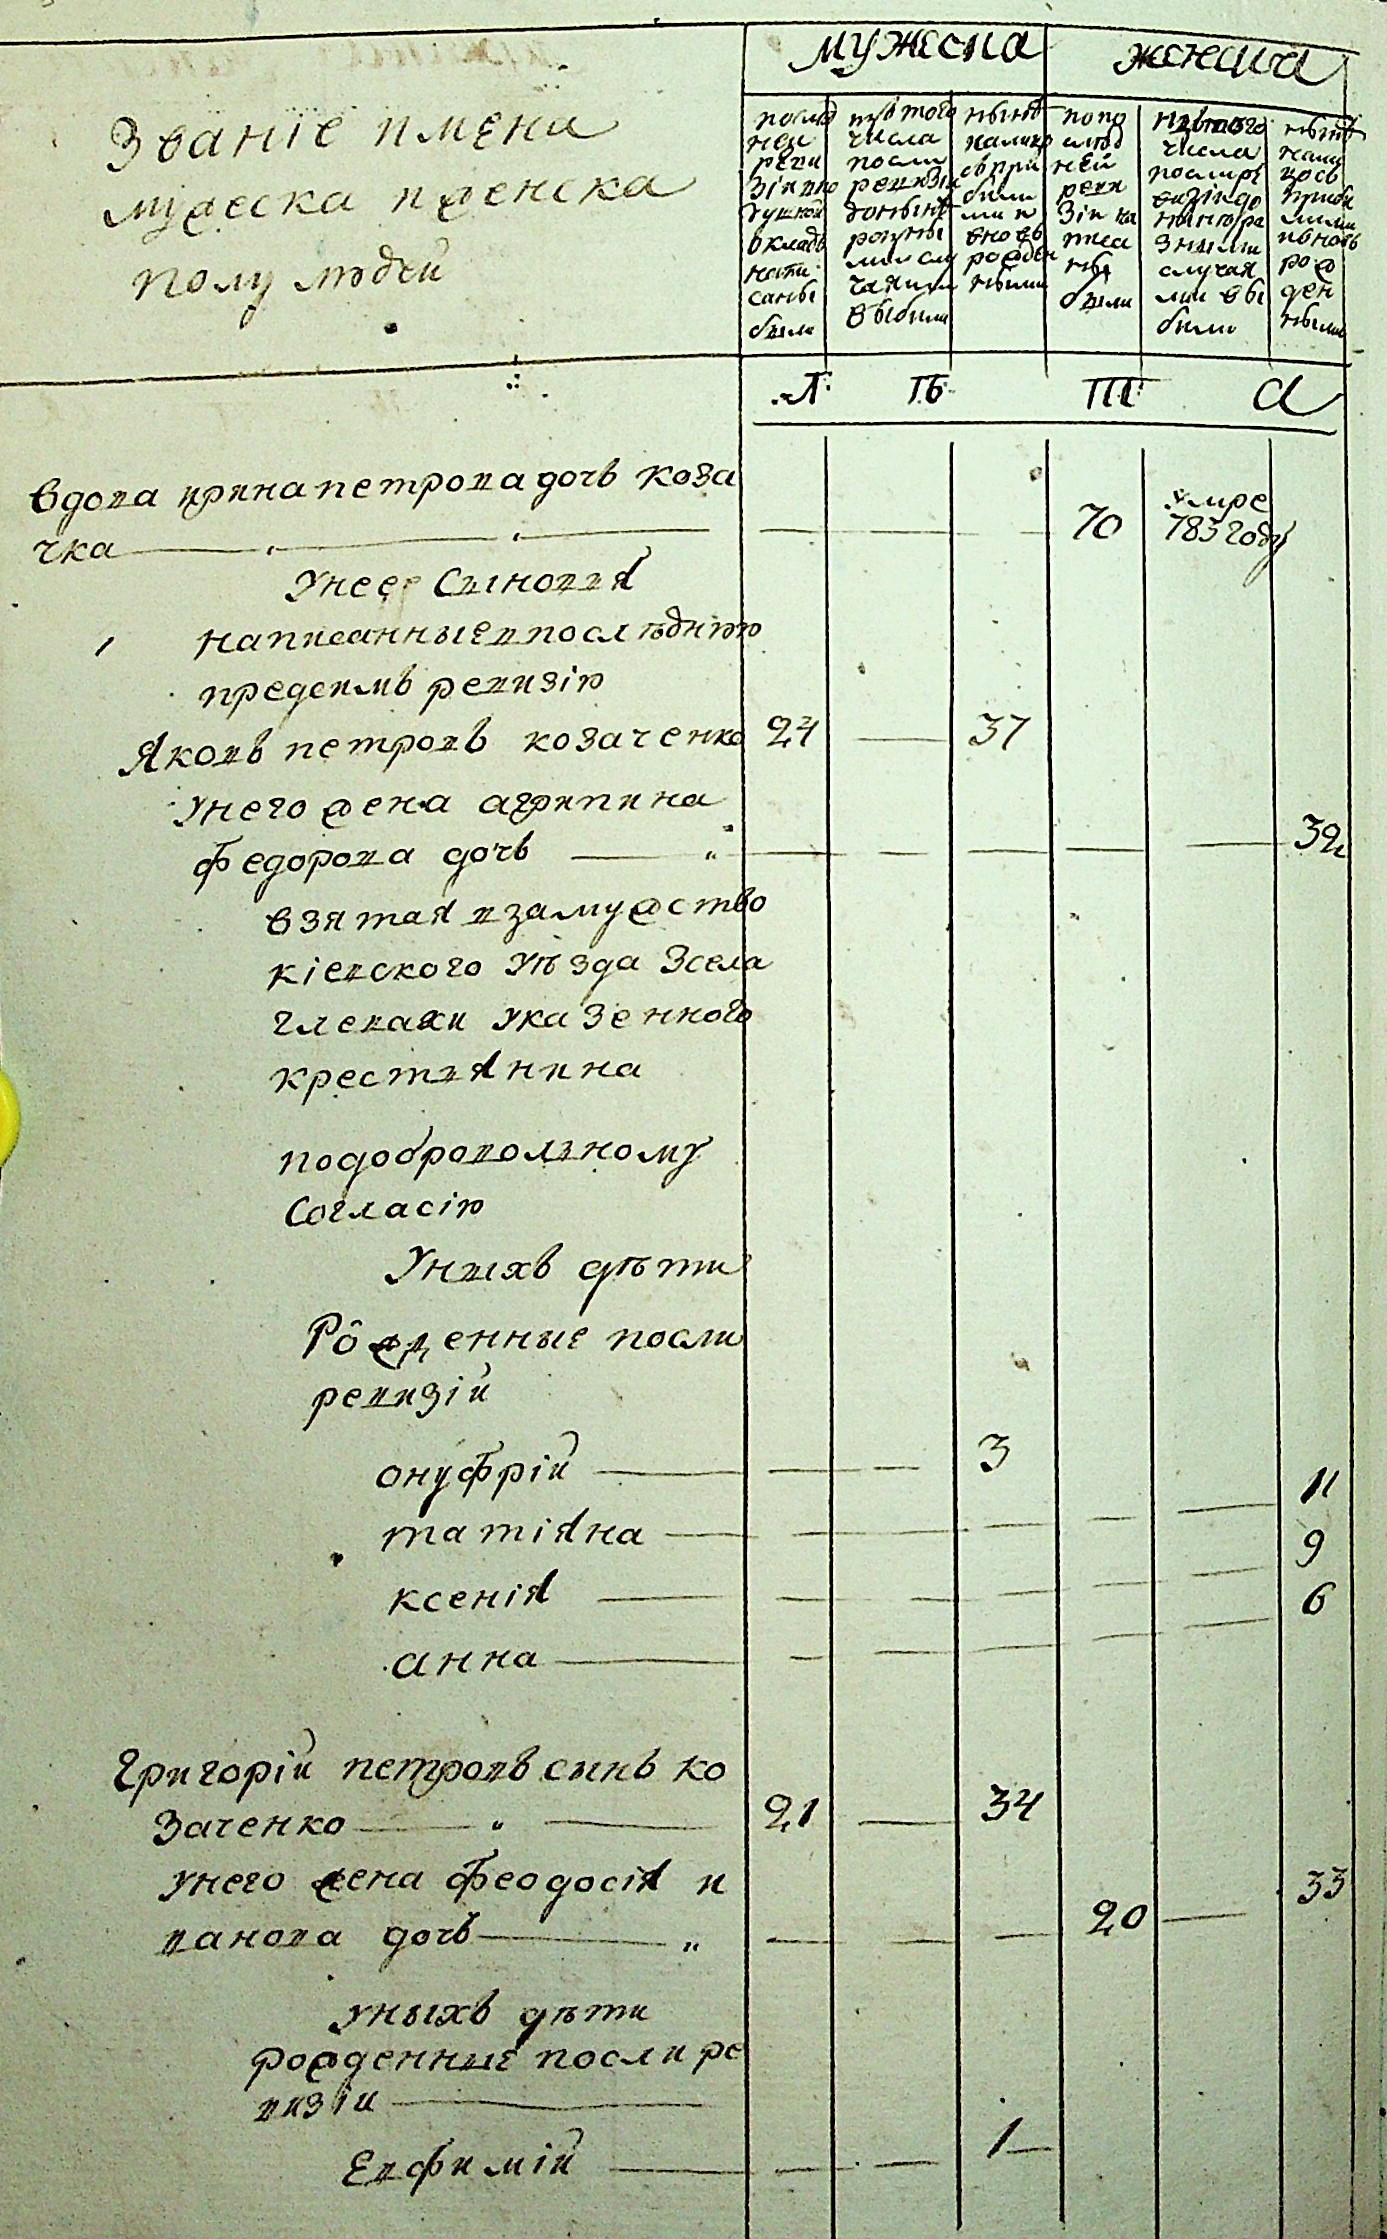 мужеска женска
Званіе имена
мужеска и женска
полу людей
послѣд
ней
реви
зіи по
душной
окладъ
напи
саны
были
изтого
числа
посли
ревизіи
донынѣ
розны
ми слу
чаями
выбили
нынѣ
налицо
съ при
были
ми и
вновь
рожден
ными
по по
слѣд
ней
реви
зіи на
писа
ны
были
изтого
числа
посли ре
визіи до
нынѣ ра
зными
случая
ми вы
были
нынѣ
нали
цось
приби
лими
ивновь
рож
ден
ными
Л: ТЪ: ТЛ: А
вдова ирина петрова дочь коза
чка 70 умре
783 году
У нее Сыновья
написанные в послѣднюю
предсимъ ревизію
Яковъ петровъ козаченко 24 37
У него жена агрипина
федорова дочь 32
взятая в замужство
кіевского уѣзда Зсела
глевахи у казенного
крестиянина
по доброволному
Согласію
У ныхъ дѣти
Рожденные посли
ревизій
онуфрій 3
татіяна 11
ксенія 9
анна 6
Григорій петровъ синъ ко
заченко 21 34
У него жена феодосія и
ванова дочь 20 33
У ныхъ дѣти
рожденные посли ре
визіи
Евфимій 1